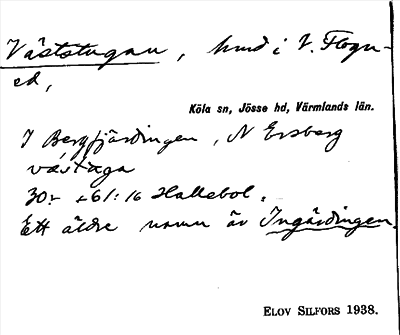 Väststugan, hmd i V. Flogn-
ed,
Köla sn, Jösse hd, Värmlands län.
I Bergfjärdingen, N Ersberg
västuga
30: 61:16 Hallebol.
Ett äldre namn är Ingärdingen.
ELOV SILFORS 1938.